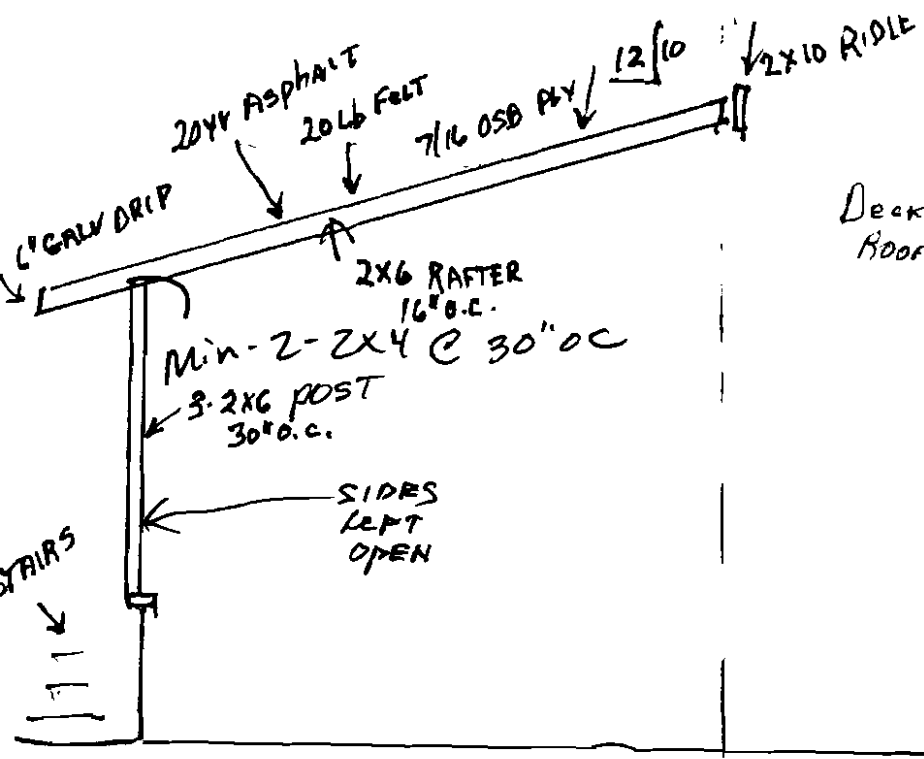 20YR ASPHALT
20Lb FELT
7/16 OSB PLY
12 10
2X10 RIDLE
GALV DRIP
Deck
ROOF
2X6 RAFTER
16" O.C.
Min-2-2x4 @ 30" OC
2X6 POST
30" O.C.
SIDES
LEFT
OPEN
STAIRS